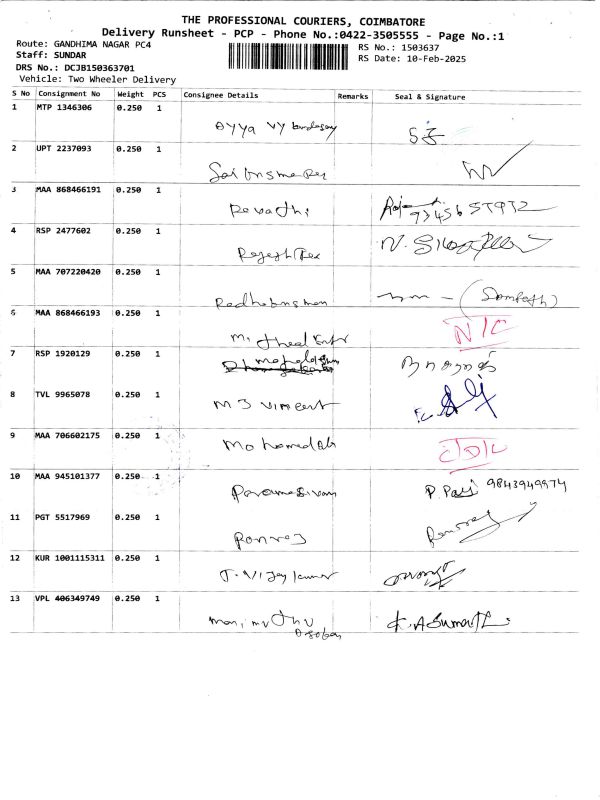 THE PROFESSIONAL COURIERS, COIMBATORE
Delivery Runsheet - PCP - Phone No.:0422-3505555 - Page No.:1
Route: GANDHIMA NAGAR PC4
RS No.: 1503637
Staff: SUNDAR
RS Date: 10-Feb-2025
DRS No.: DCJB150363701
Vehicle: Two Wheeler Delivery
S No Consignment No Weight PCS Consignee Details Remarks Seal & Signature
1 MTP 1346306 0.250 1
Ayya
2 UPT 2237093 0.250 1
3 MAA 868466191 0.250 1
Revathi
4 RSP 2477602 0.250 1
5 MAA 707220420 0.250 1
Radhakrishnan (Sampath)
6 MAA 868466193 0.250 1
N/C
7 RSP 1920129 0.250 1
நாகராஜ்
8 TVL 9965078 0.250 1
M J Vincent
9 MAA 706602175 0.250 1
Mohamed Ali
10 MAA 945101377 0.250 1
Paramasivam 9843949974
11 PGT 5517969 0.250 1
Ponraj
12 KUR 1001115311 0.250 1
T. Vijaykumar
13 VPL 406349749 0.250 1
Manimuthu